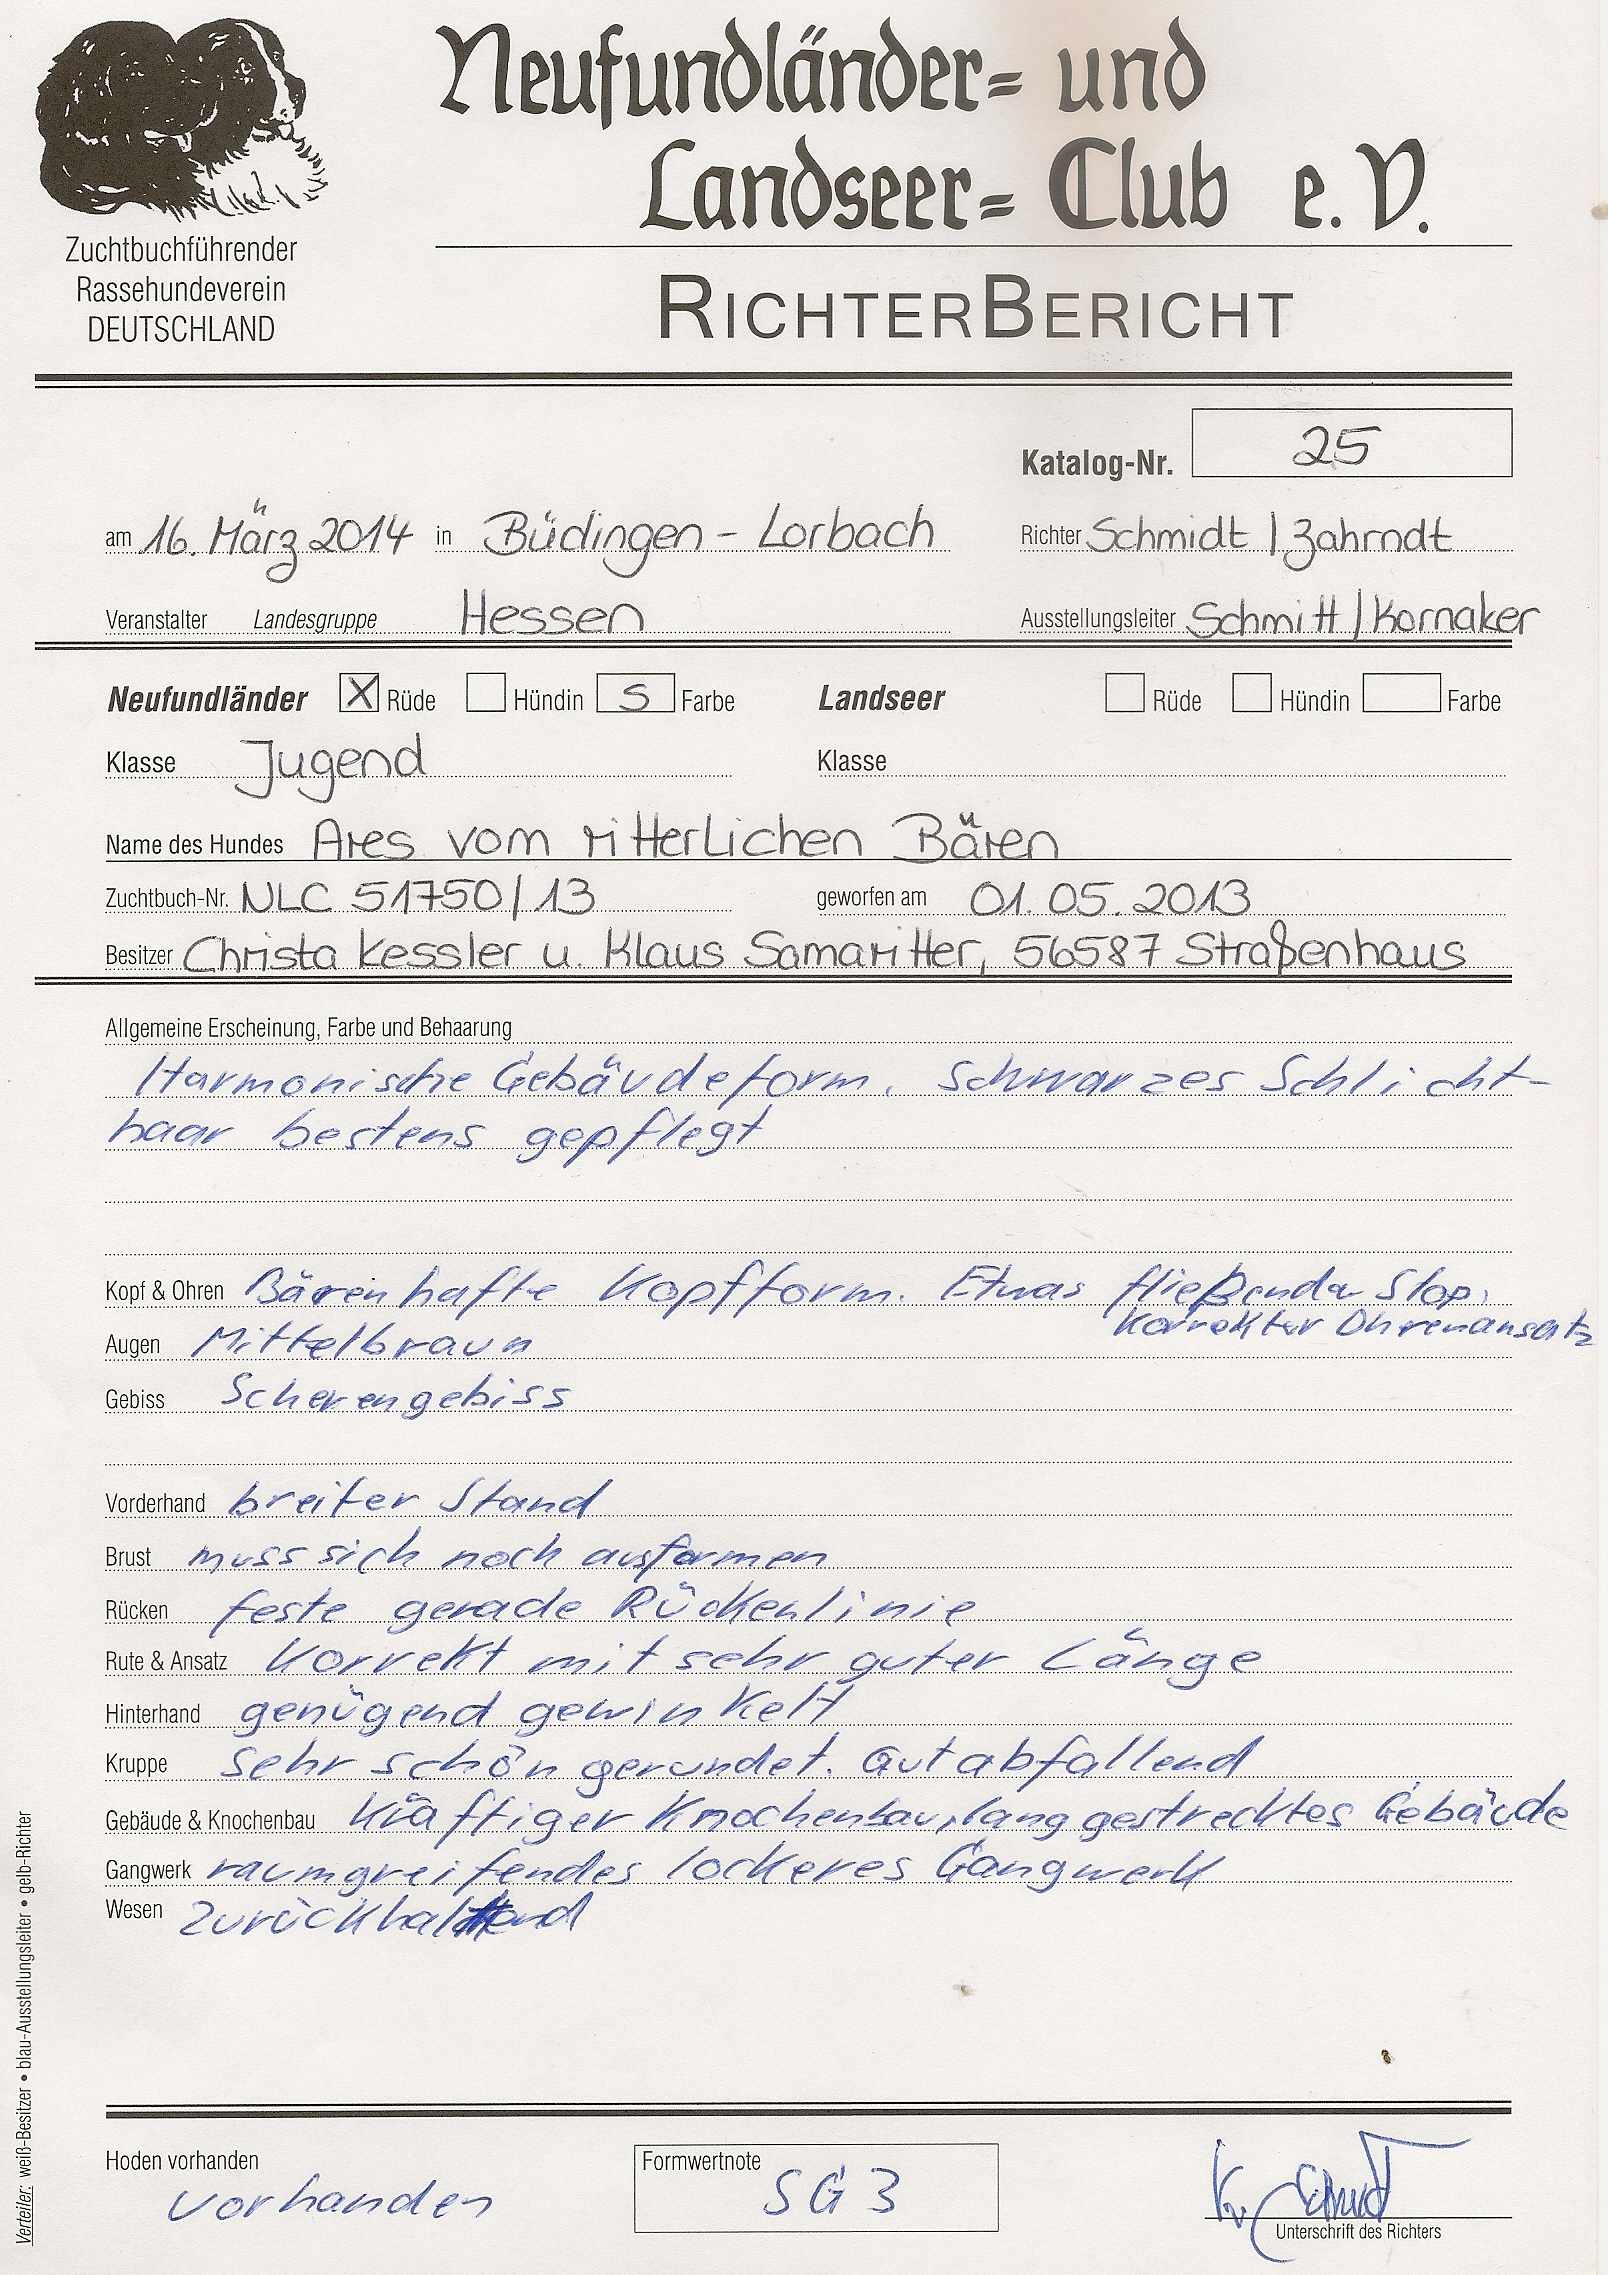 Neufundländer= und
Landseer= Club e. V.
Zuchtbuchführender
Rassehundeverein
DEUTSCHLAND
RICHTERBERICHT
Katalog-Nr. 25
am 16. März 2014 in Büdingen - Lorbach Richter Schmidt / Zahrndt
Veranstalter Landesgruppe Hessen Ausstellungsleiter Schmitt / Kornaker
Neufundländer X Rüde Hündin S Farbe Landseer Rüde Hündin Farbe
Klasse Jugend Klasse
Name des Hundes Ares vom ritterlichen Bären
Zuchtbuch-Nr. NLC 51750/13 geworfen am 01.05.2013
Besitzer Christa Kessler u. Klaus Samaritter, 56587 Straßenhaus
Allgemeine Erscheinung, Farbe und Behaarung
Harmonische Gebäudeform. Schwarzes Schlicht-
haar bestens gepflegt
Kopf & Ohren Bärenhafte Kopfform. Etwas fließender Stop.
Korrekter Ohrenansatz
Augen Mittelbraun
Gebiss Scherengebiss
Vorderhand breiter Stand
Brust muss sich noch ausformen
Rücken feste gerade Rückenlinie
Rute & Ansatz Korrekt mit sehr guter Länge
Hinterhand genügend gewinkelt
Kruppe sehr schön gerundet. Gut abfallend
Gebäude & Knochenbau Kräftiger Knochenbau, langgestrecktes Gebäude
Gangwerk raumgreifendes lockeres Gangwerk
Wesen zurückhaltend
Hoden vorhanden
vorhanden
Formwertnote
SG 3
Unterschrift des Richters
Verteiler: weiß-Besitzer • blau-Ausstellungsleiter • gelb-Richter